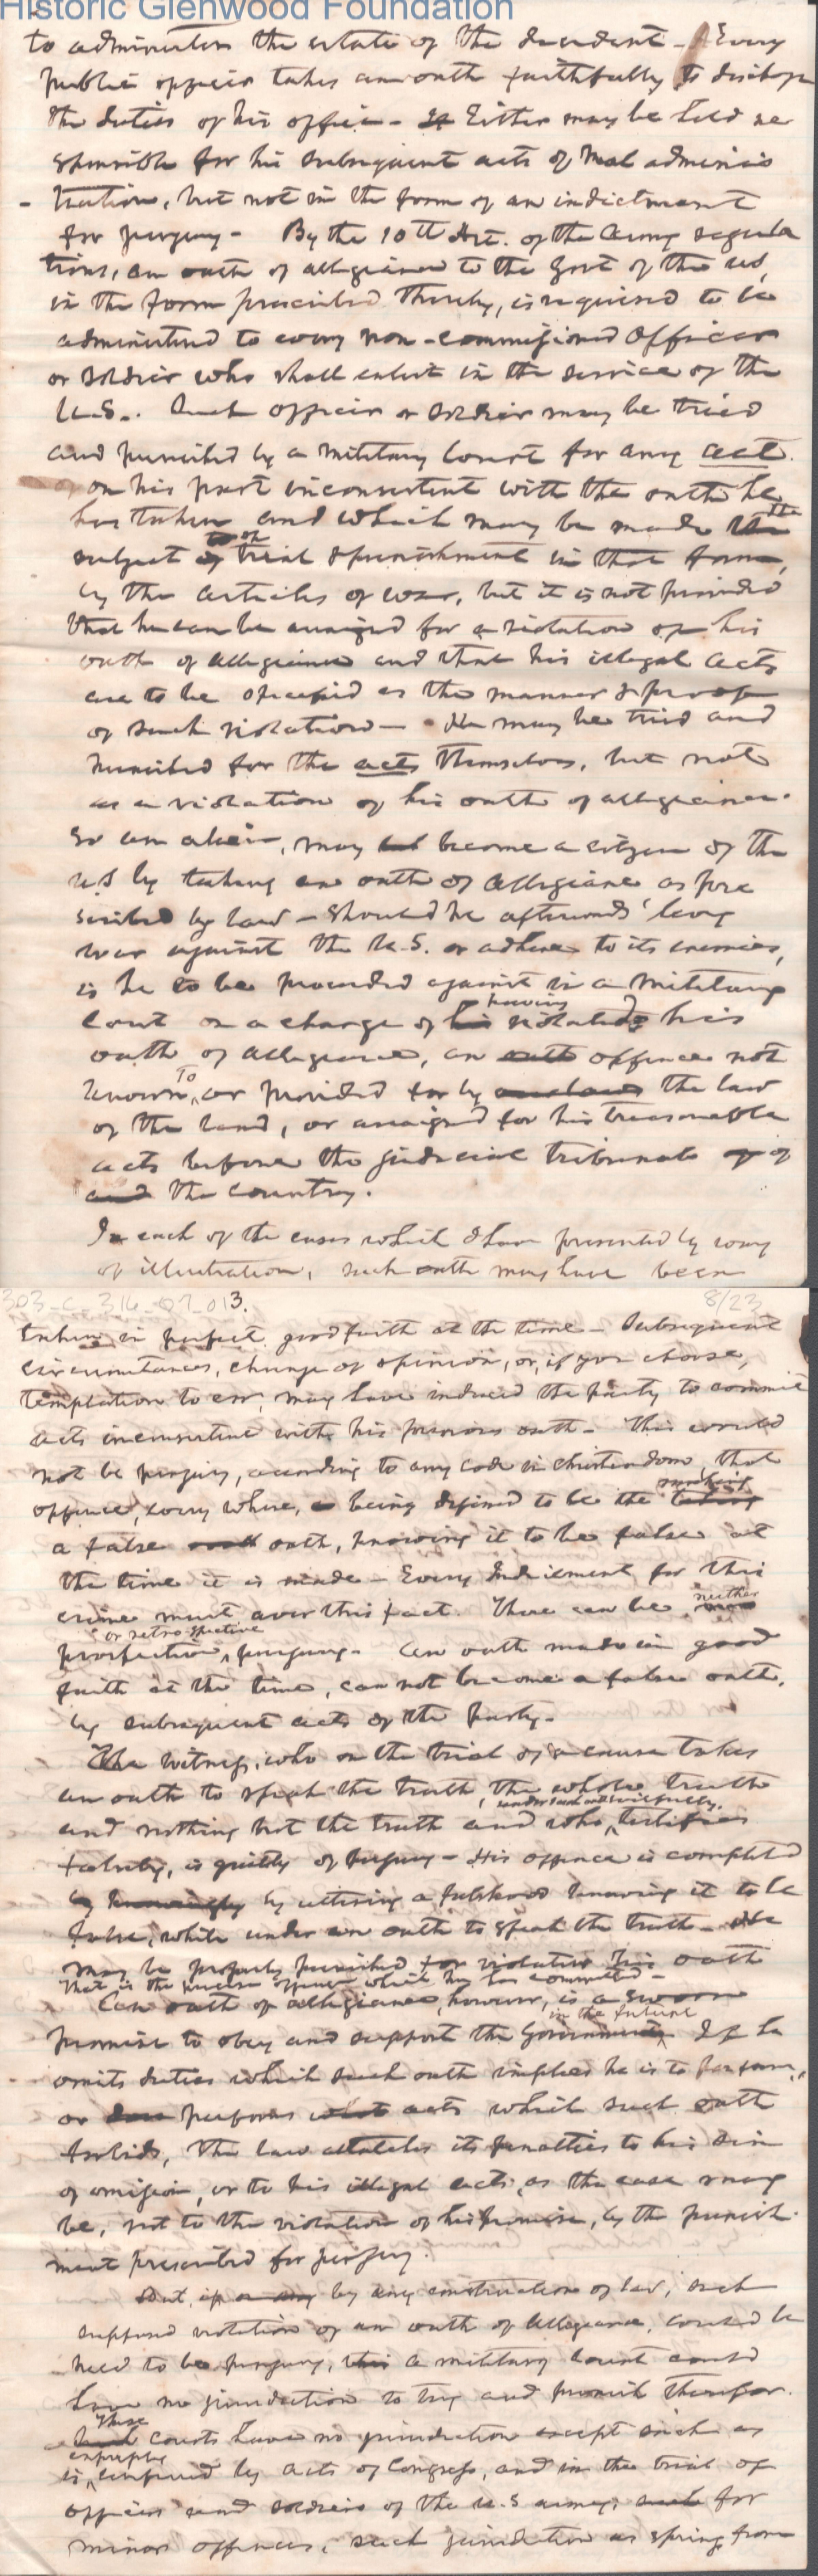 Historic Glenwood Foundation
to administer the estate of the decedent - Every
public officer takes an oath faithfully to discharge
the duties of his office - If Either may be held re
sponsible for his subsequent acts of mal adminis
- tration, but not in the form of an indictment
for perjury - By the 10th Art. of the Army regula
tions, an oath of allegiance to the Govt of the US,
in the form prescribed thereby, is required to be
administered to every non-commissioned officer
or soldier who shall enlist in the service of the
U.S.. Such officer or soldier may be tried
and punished by a military Court for any act
on his part inconsistent with the oath he
has taken and which may be made the
subject of trial & punishment in that form,
by the articles of war, but it is not provided
that he can be arraigned for a violation of his
oath of allegiance and that his illegal acts
are to be specified as the manner & proof
of such violation - He may be tried and
punished for the acts themselves, but not
as a violation of his oath of allegiance.
So an alien, may become a citizen of the
U.S by taking an oath of allegiance as pre
scribed by law - should he afterwards levy
war against the U.S. or adhere to its enemies,
is he to be proceeded against in a military
Court on a charge of his having violated his
oath of allegiance, an oath offence not
known to, or provided for by the law
of the land, or arraigned for his treasonable
acts before the judicial tribunals of
and the country.
In each of the cases which I have presented by way
of illustration, such oath may have been
303-C-316-07-013. 8/23
taken in perfect good faith at the time - Subsequent
circumstances, change of opinion, or, if you choose,
temptation to err, may have induced the party to commit
acts inconsistent with his previous oath - This would
not be perjury, according to any code in christendom, that
offence, every where, being defined to be the making taking
a false oath, knowing it to be false at
the time it is made - Every Indictment for this
crime must aver this fact. There can be neither
prospective, or retrospective perjury - An oath made in good
faith at the time, can not become a false oath,
by subsequent acts of the party -
The witness, who on the trial of a cause takes
an oath to speak the truth, the whole truth
and nothing but the truth and who, under such oath wilfully, testifies
falsely, is guilty of perjury - His offence is completed
by knowingly by uttering a falsehood knowing it to be
false, while under an oath to speak the truth - He
may be properly punished for violating his oath
That is the precise offence which he has committed -
An oath of allegiance, however, is a sworn
promise to obey and support the Government in the future If he
omits duties which such oath implies he is to perform,
or does performs what acts which such oath
forbids, the law attaches its penalties to his sin
of omission, or to his illegal acts, as the case may
be, not to the violation of his promise, by the punish
ment prescribed for perjury.
But, if by any construction of law, such
supposed violation of an oath of allegiance, could be
held to be perjury, this a military Court could
have no jurisdiction to try and punish therefor.
These Such courts have no jurisdiction except such as
is, expressly conferred by acts of Congress, and in the trial of
officers and soldiers of the U.S army, such for
minor offences, such jurisdiction as springs from